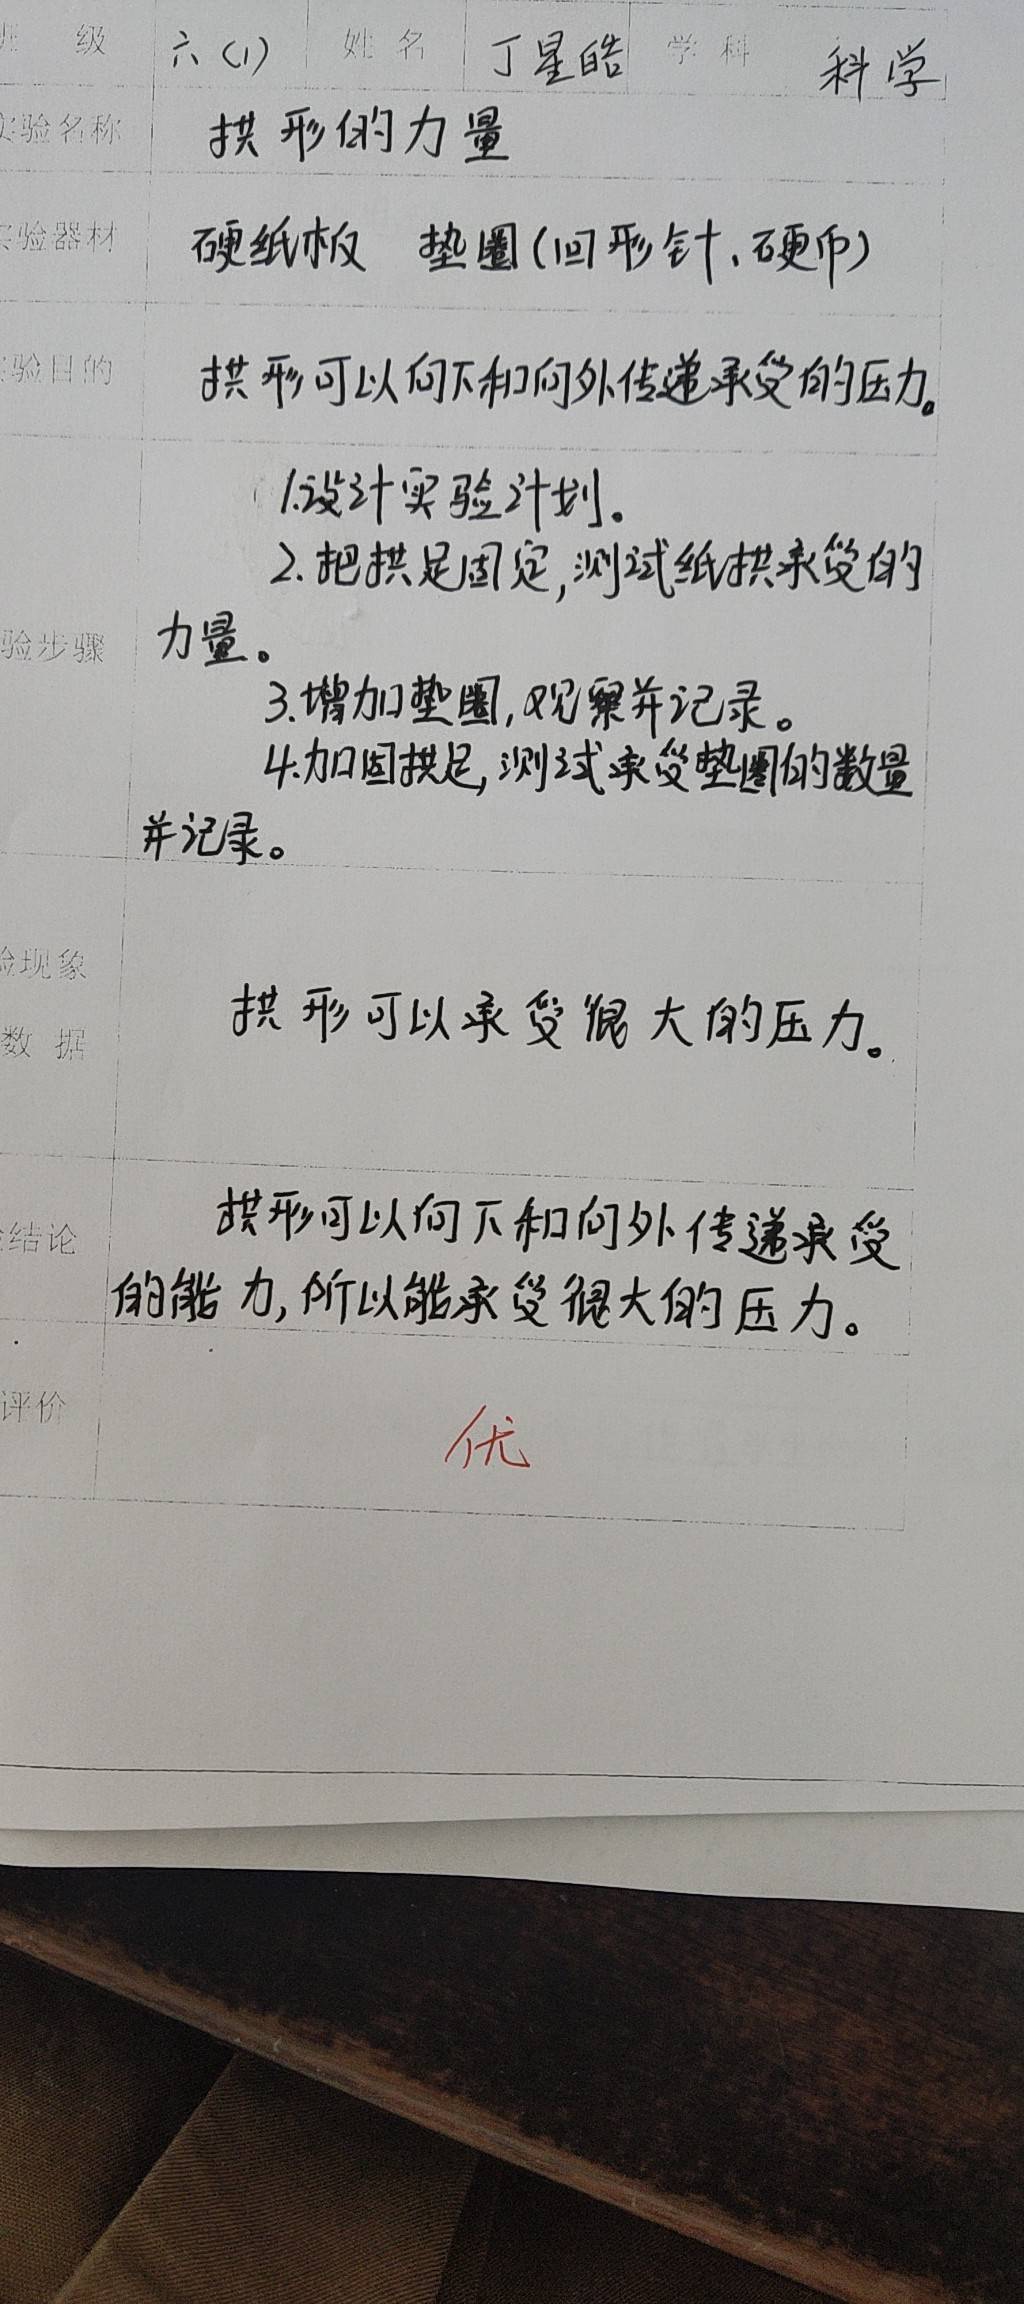 班 级 六(1) 姓 名 丁星皓 学 科 科学
实验名称 拱形的力量
实验器材 硬纸板 垫圈(回形针、硬币)
实验目的 拱形可以向下和向外传递承受的压力。
1.设计实验计划。
2.把拱足固定,测试纸拱承受的
验步骤 力量。
3.增加垫圈,观察并记录。
4.加固拱足,测试承受垫圈的数量
并记录。
验现象
数 据 拱形可以承受很大的压力。
结论 拱形可以向下和向外传递承受
的能力,所以能承受很大的压力。
评价 优